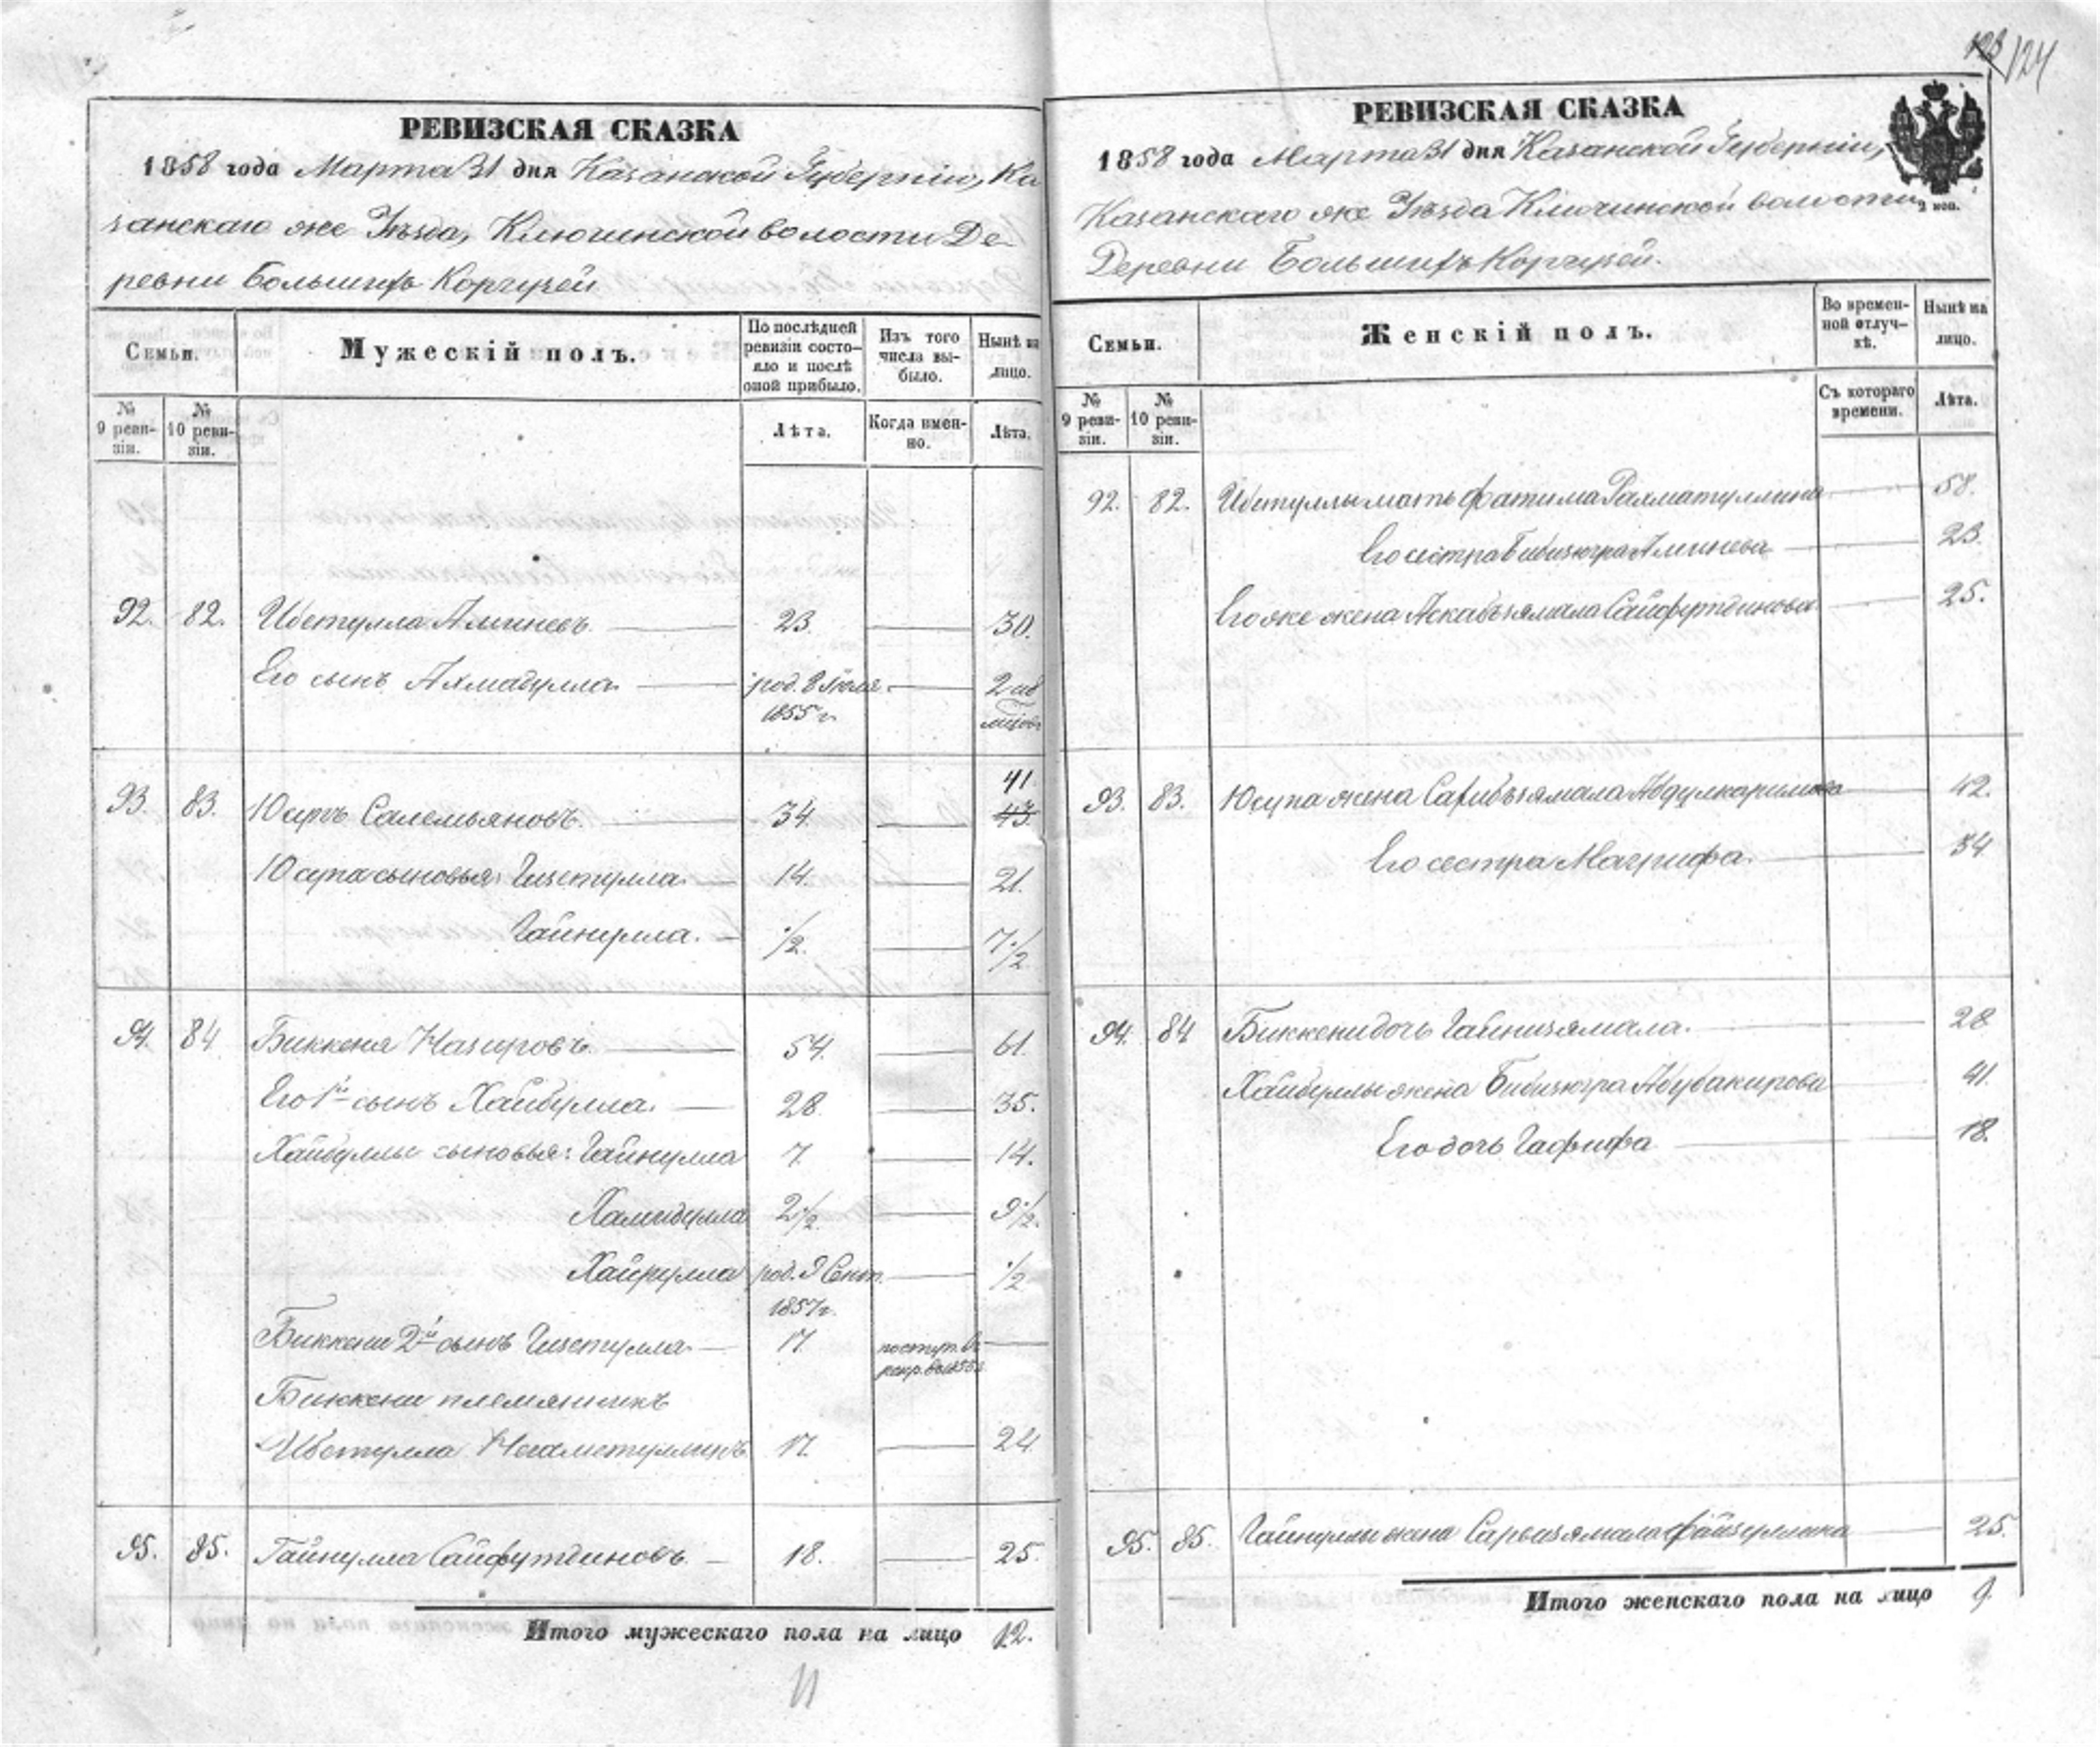 РЕВИЗСКАЯ СКАЗКА
1858 года Марта 31 дня Казанской Губернiи, Ка
занскаго же Уѣзда, Ключинской волости Де
ревни Большихъ Корчузей
Семьи.
Мужескiй полъ.
По послѣдней ревизiи состояло и послѣ оной прибыло.
Изъ того числа выбыло.
Нынѣ на лицо.
№ 9 ревизiи.
№ 10 ревизiи.
Лѣта.
Когда именно.
Лѣта.
92. 82. Ибетулла Аминевъ 23. 30.
Его сынъ Ахмадулла род. 8 Iюля 1855 г. 2
93. 83. Юсупъ Салемьяновъ. 34. 41 43.
Юсупа сыновья: Гизетулла 14. 21.
Гайнулла. 1/2. 7 1/2
94. 84. Биккеня Назировъ. 54. 61.
Его 1й сынъ Хайбулла. 28. 35.
Хайбуллы сыновья: Гайнулла 7. 14.
Хамидулла 2 1/2. 9 1/2.
Хайрулла род. 9 Сент. 1857 г. 1/2
Биккени 2й сынъ Гизетулла 17. поступ. въ рекр.
Биккени племянникъ
Ибетулла Негаметуллинъ 17. 24
95. 85. Гайнулла Сайфутдиновъ. 18. 25.
Итого мужескаго пола на лицо 12.
11
123 124
РЕВИЗСКАЯ СКАЗКА
1858 года Марта 31 дня Казанской Губернiи,
Казанскаго же Уѣзда Ключинской волости
Деревни Большихъ Корчузей.
2 коп.
Семьи.
Женскiй полъ.
Во временной отлучкѣ.
Нынѣ на лицо.
№ 9 ревизiи.
№ 10 ревизiи.
Съ котораго времени.
Лѣта.
92. 82. Ибетуллы мать Фатима Рахматуллина 58.
Его сестра Бибизюгра Аминева 23.
Его же жена Сайфутдинова 25.
93. 83. Юсупа жена Сахибъзямала Абдулкаримова 42.
Его сестра Магрифа. 34
94. 84 Биккени дочь Гайнизямала. 28
Хайбуллы жена Бибизюгра Абубакирова 41.
Его дочь Гафифа 18.
95. 85. Гайнуллы жена Сарвизямала Файзуллина 25.
Итого женскаго пола на лицо 9.